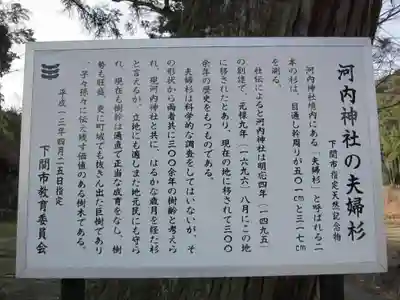 河内神社の夫婦杉
下関市指定天然記念物
河内神社境内にある「夫婦杉」と呼ばれる二
本の杉は、目通し幹周りが五〇一㎝と三一七㎝
を測る。
社伝によると河内神社は明応四年(一四九五)
の創建で、元禄九年(一六九六)八月にこの地
に移されたとあり、現在の地に移されて三〇〇
余年の歴史をもつものである。
夫婦杉は科学的な調査をしてはいないが、そ
の形状から両者共に三〇〇余年の樹齢と考えら
れ、現河内神社と共に、はるかな歳月を経た杉
と言えるが、立地にも適しまた地元民にも守ら
れ、現在も樹幹は通直で正当な成育をなし、樹
勢も旺盛、更に町域でも抜きん出た巨樹であり
、子々孫々に伝え残す価値のある樹木である。
平成一三年四月二五日指定
下関市教育委員会